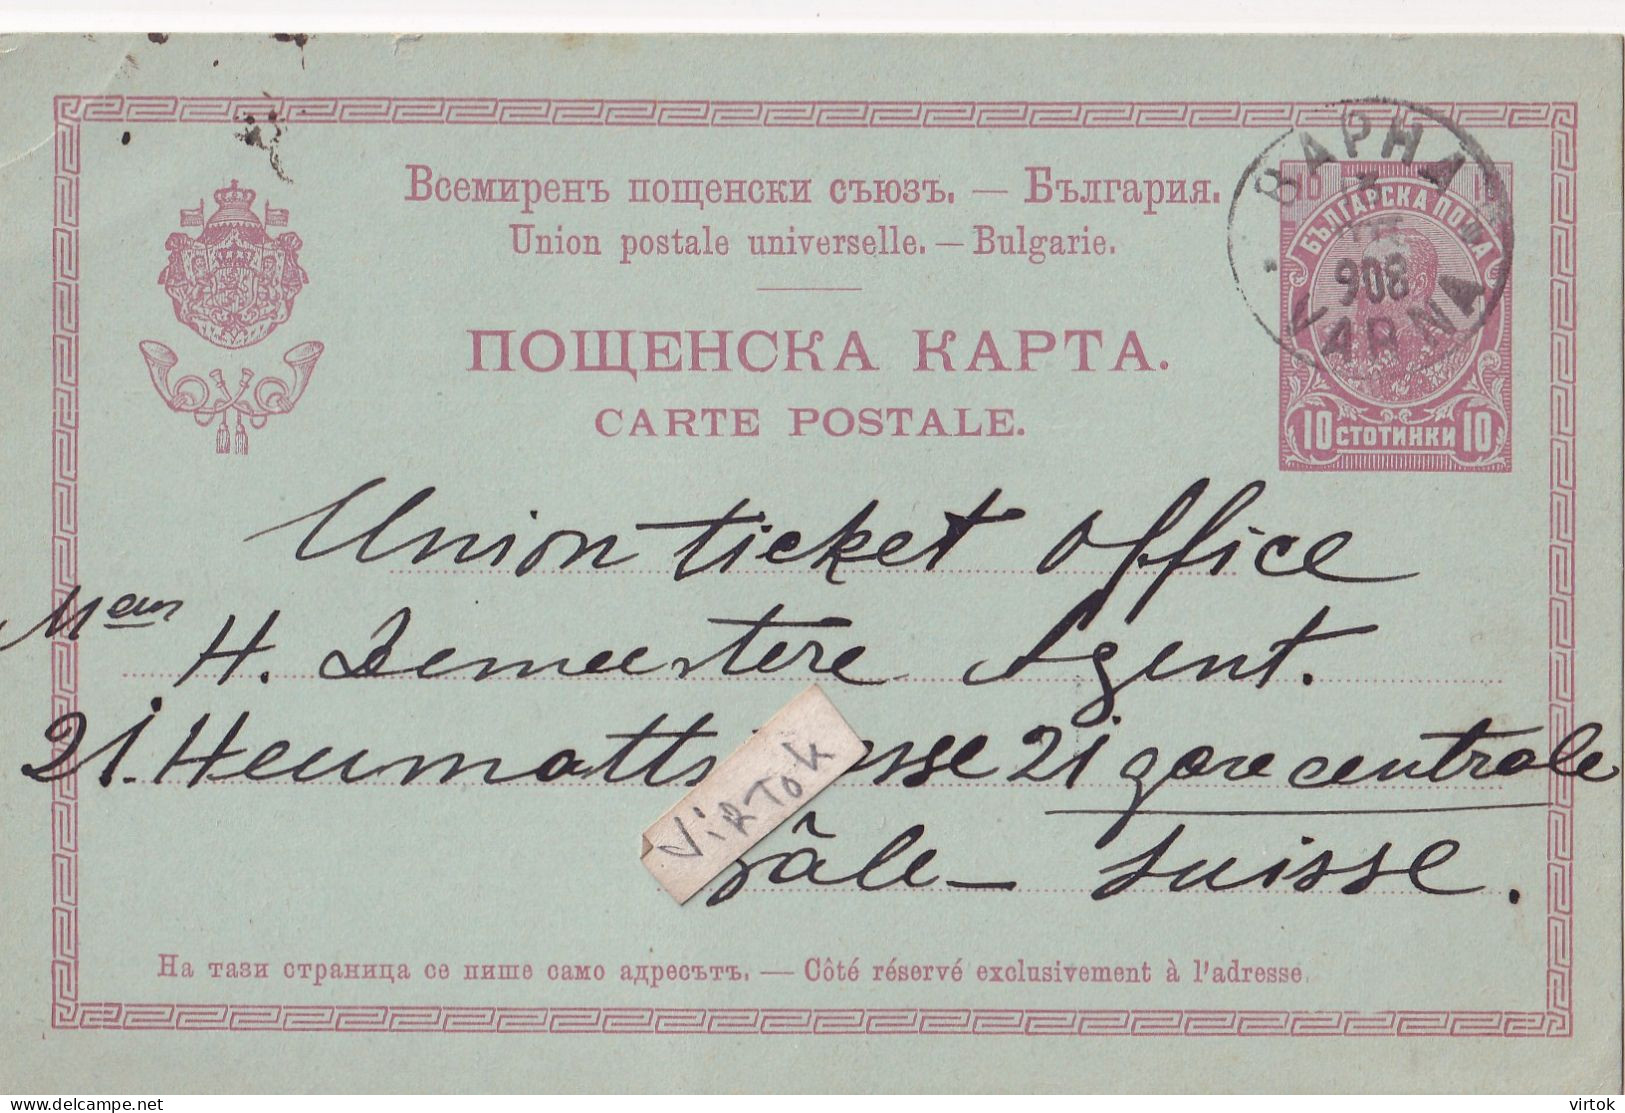 Всемиренъ пощенски съюзъ. — България.
Union postale universelle. — Bulgarie.
ПОЩЕНСКА КАРТА.
CARTE POSTALE.
ВАРНА
908
VARNA
БЪЛГАРСКА ПОЩА
10 СТОТИНКИ 10
Union ticket office
H. Demeestere Agent.
21. Heumatts sse 21 gare centrale
VIRTOK
Bâle – Suisse.
На тази страница се пише само адресътъ. — Côté réservé exclusivement à l'adresse.
delcampe.net
virtok